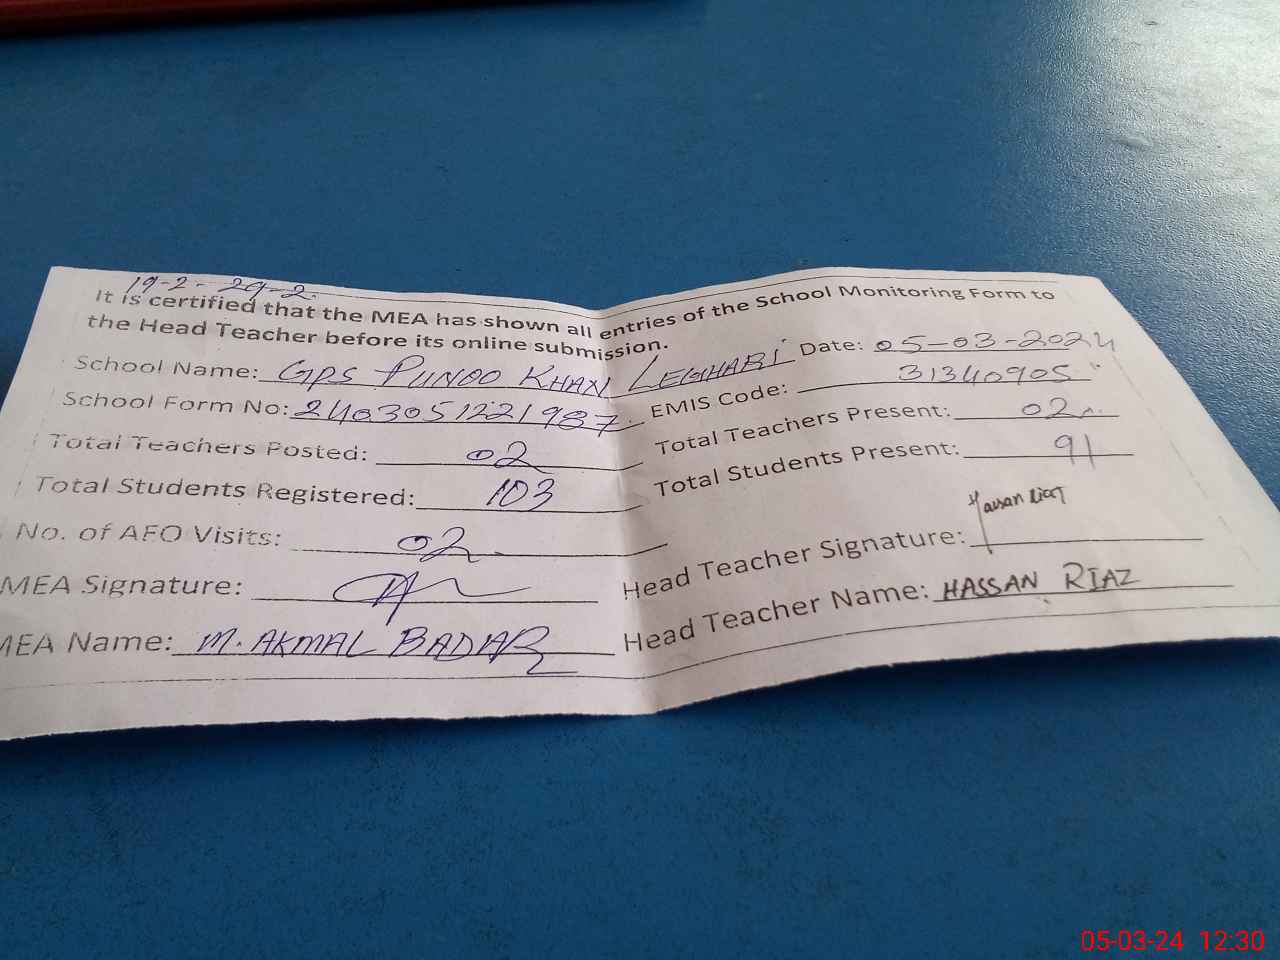 19-2 - 29-2.
It is certified that the MEA has shown all entries of the School Monitoring Form to
the Head Teacher before its online submission.
School Name: GPS PUNOO KHAN LEGHARI Date: 05-03-2024
School Form No: 2403051221987. EMIS Code: 31340905
Total Teachers Posted: 02 Total Teachers Present: 02
Total Students Registered: 103 Total Students Present: 91
No. of AFO Visits: 02 Head Teacher Signature: Hassan Riaz
MEA Signature:
Head Teacher Name: HASSAN RIAZ
MEA Name: M. AKMAL BADAR
05-03-24 12:30